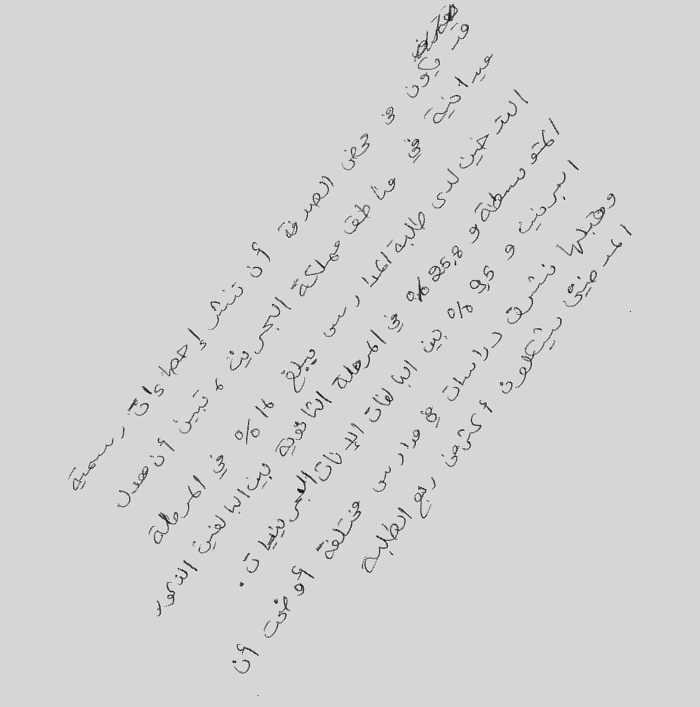 قد يكون في محض الصدفة أن تنشر إحصاءات رسمية
ميدانية في مناطق مملكة البحرين، تبين أن معدل
التدخين لدى طلبة المدارس يبلغ 16% في المرحلة
المتوسطة و 25,8% في المرحلة الثانوية بين البالغين الذكور
البحرنين و 9,5% بين البالغات الإناث البحرينيات.
وقبلها نشرت دراسات في مدارس مختلفة أوضحت أن
المدخنين يشكلون أكثر من ربع الطلبة